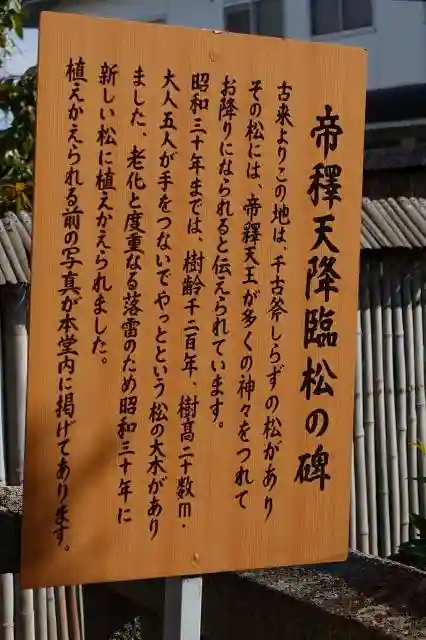 帝釋天降臨松の碑
古来よりこの地は、千古斧しらずの松があり
その松には、帝釋天王が多くの神々をつれて
お降りになられると伝えられています。
昭和三十年までは、樹齢千二百年、樹高二十数m・
大人五人が手をつないでやっとという松の大木があり
ました、老化と度重なる落雷のため昭和三十年に
新しい松に植えかえられました。
植えかえられる前の写真が本堂内に掲げてあります。